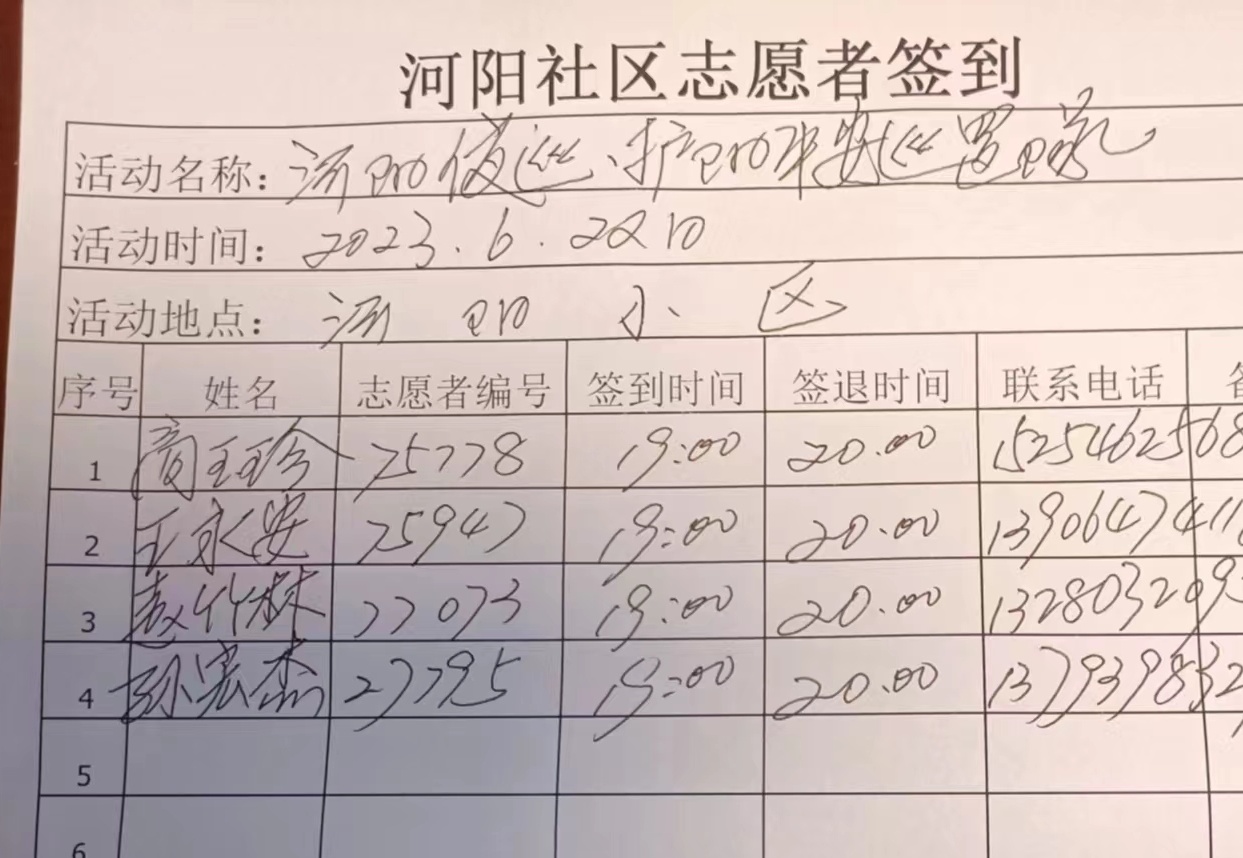 河阳社区志愿者签到
活动名称：河阳夜巡、护阳平安巡逻
活动时间：2023.6.22日
活动地点：河阳小区
序号 姓名 志愿者编号 签到时间 签退时间 联系电话
1 75778 19:00 20.00 1525462568
2 王永安 75947 19:00 20.00 1390647411
3 赵竹林 77073 19:00 20.00 132803209
4 孙宏杰 27795 19:00 20.00 137939832
5
6